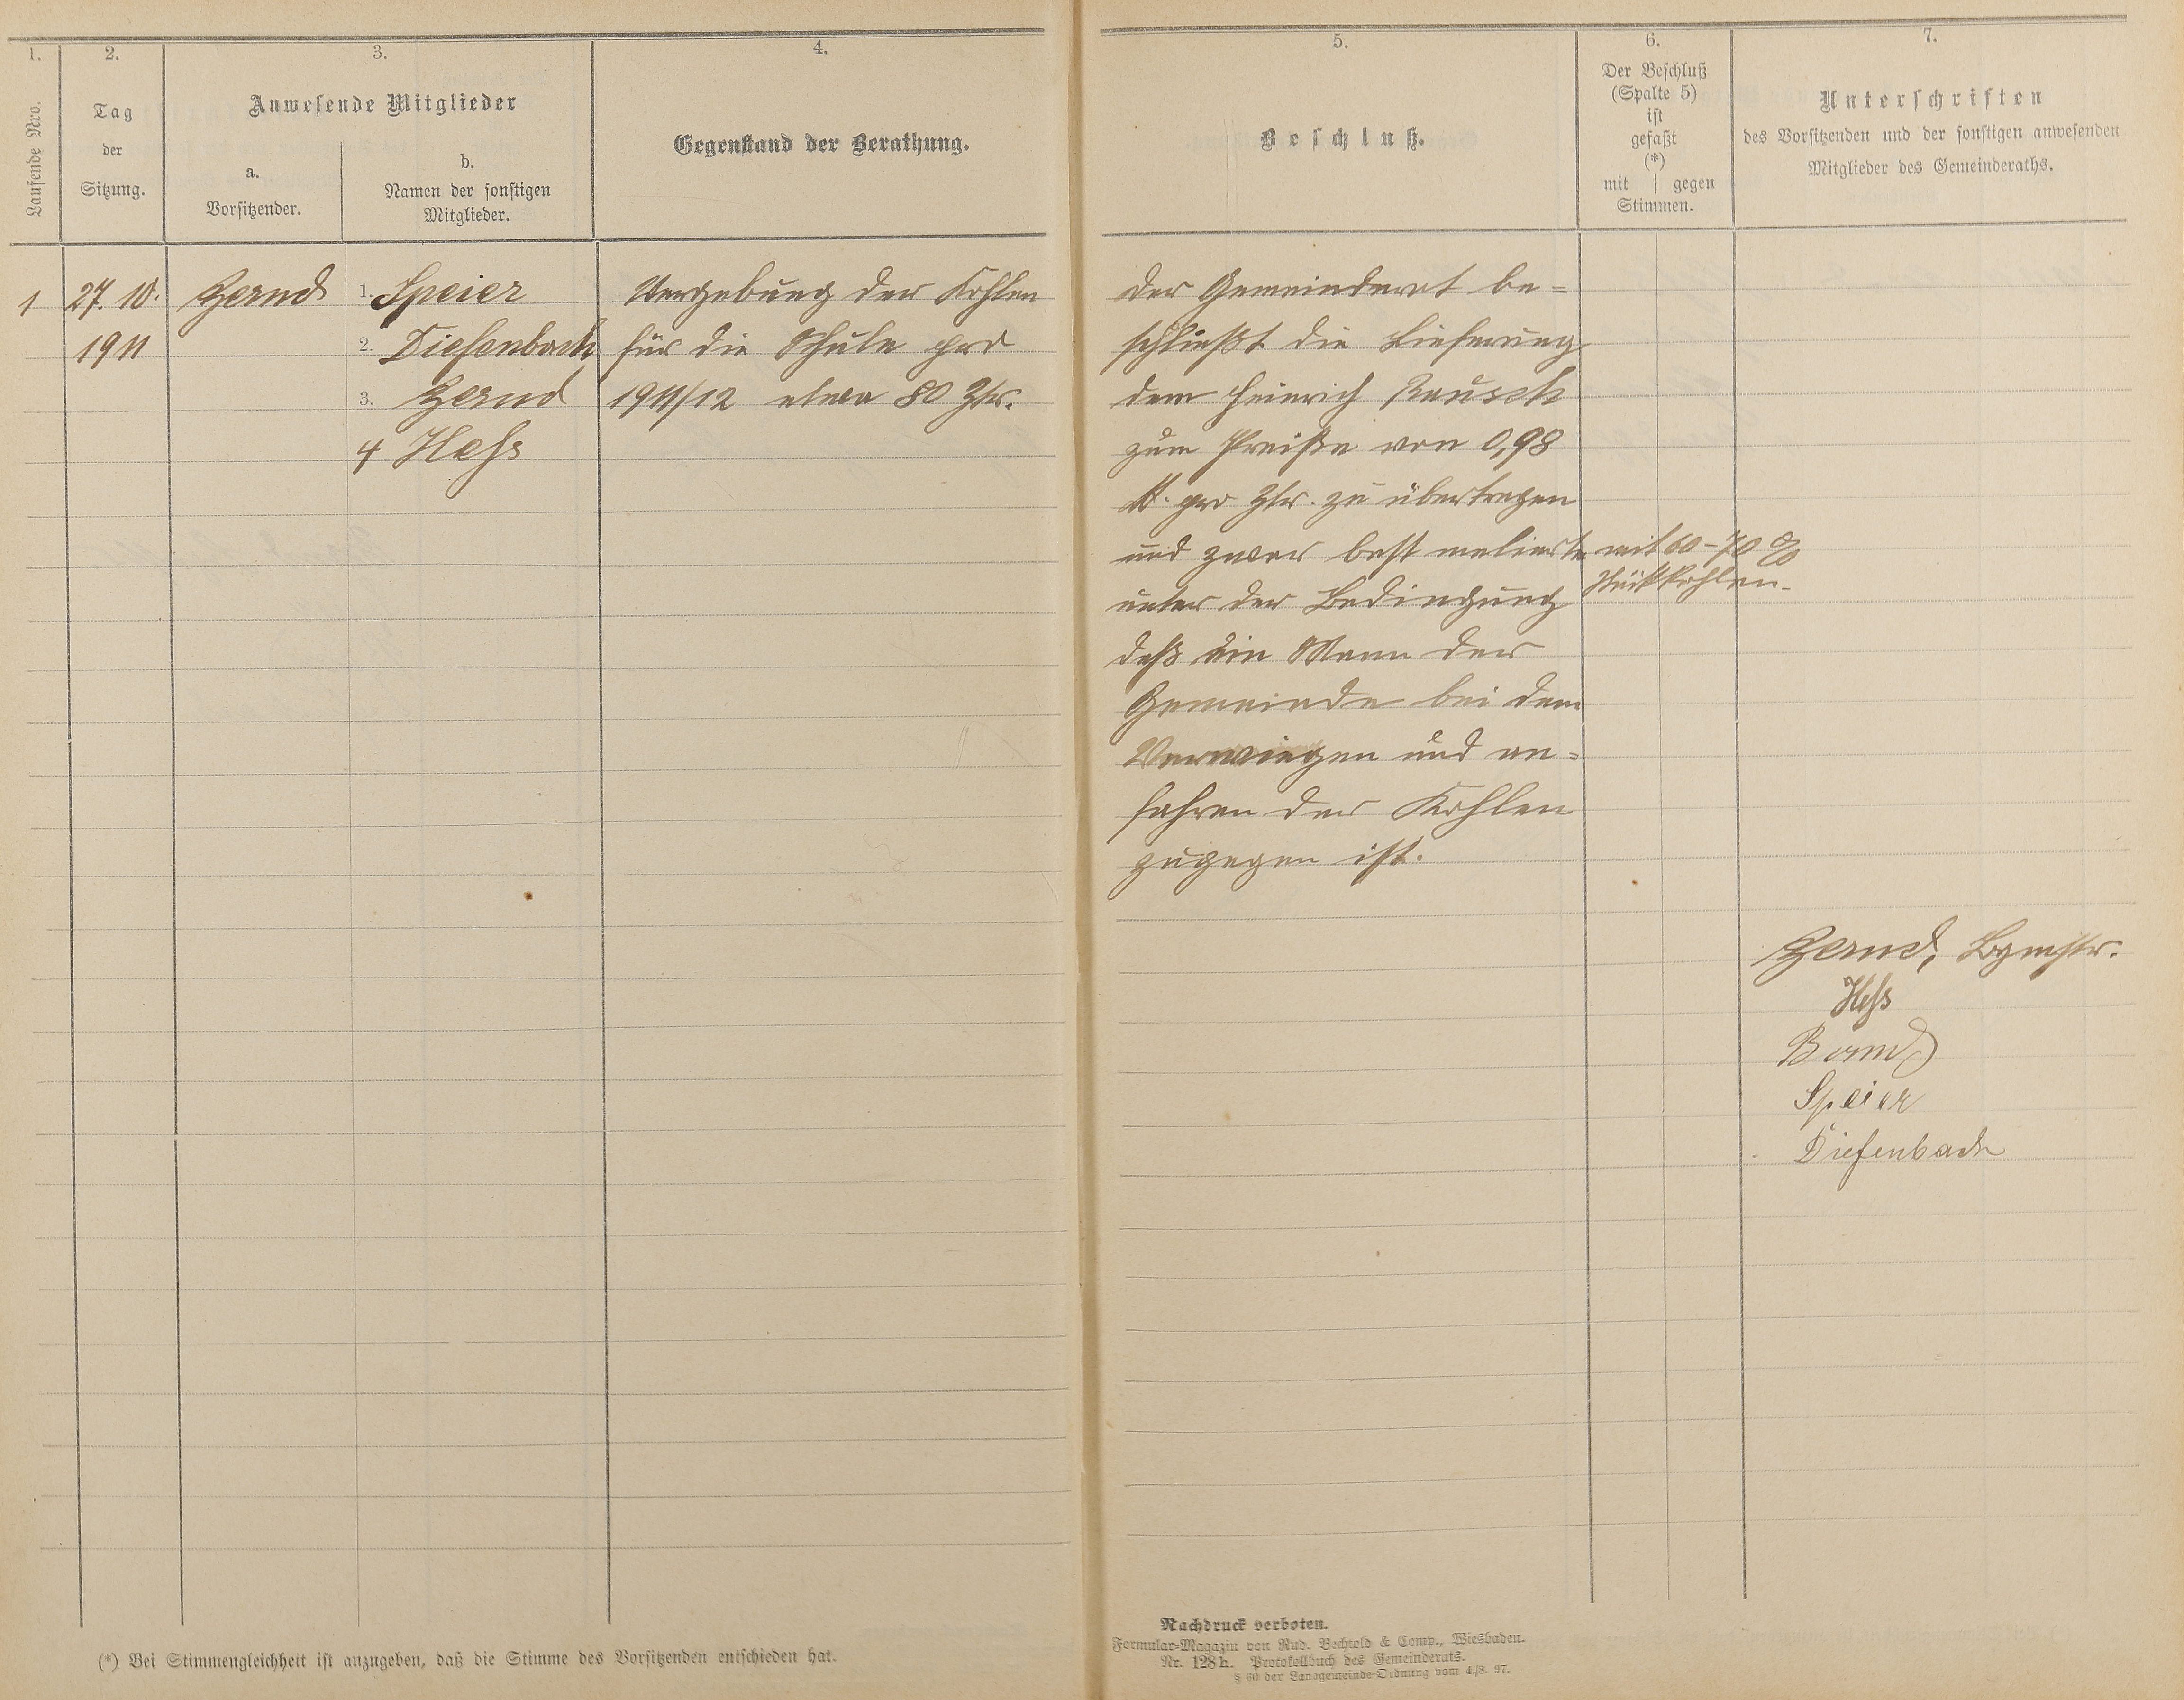 1.
2.
3.
4.
Laufende Nro.
Tag
der
Sitzung.
Anwesende Mitglieder
a.
Vorsitzender.
b.
Namen der sonstigen
Mitglieder.
Gegenstand der Berathung.
1
27. 10.
1911
Zernd
1. Speier
2. Diefenbach
3. Zernd
4 Heſs
Vergebung der Kohlen
für die Schule pro
1911/12 etwa 80 Ztr.
(*) Bei Stimmengleichheit ist anzugeben, daß die Stimme des Vorsitzenden entschieden hat.
5.
6.
7.
Beschluß.
Der Beschluß
(Spalte 5)
ist
gefaßt
(*)
mit | gegen
Stimmen.
Unterschriften
des Vorsitzenden und der sonstigen anwesenden
Mitglieder des Gemeinderaths.
Der Gemeinderat be=
schließt die Lieferung
dem Heinrich Rausch
zum Preiße von 0,98
M. pro Ztr. zu übertragen
und zwar best melierte mit 60-70 %
Stückkohlen.
unter der Bedingung
daß ein Mann der
Gemeinde bei dem
Verwiegen und an=
fahren der Kohlen
zugegen ist.
Zernd, Bgmstr.
Heſs
Speier
Diefenbach
Nachdruck verboten.
Formular-Magazin von Rud. Bechtold & Comp., Wiesbaden.
Nr. 128 h. Protokollbuch des Gemeinderats.
§ 60 der Landgemeinde-Ordnung vom 4./8. 97.